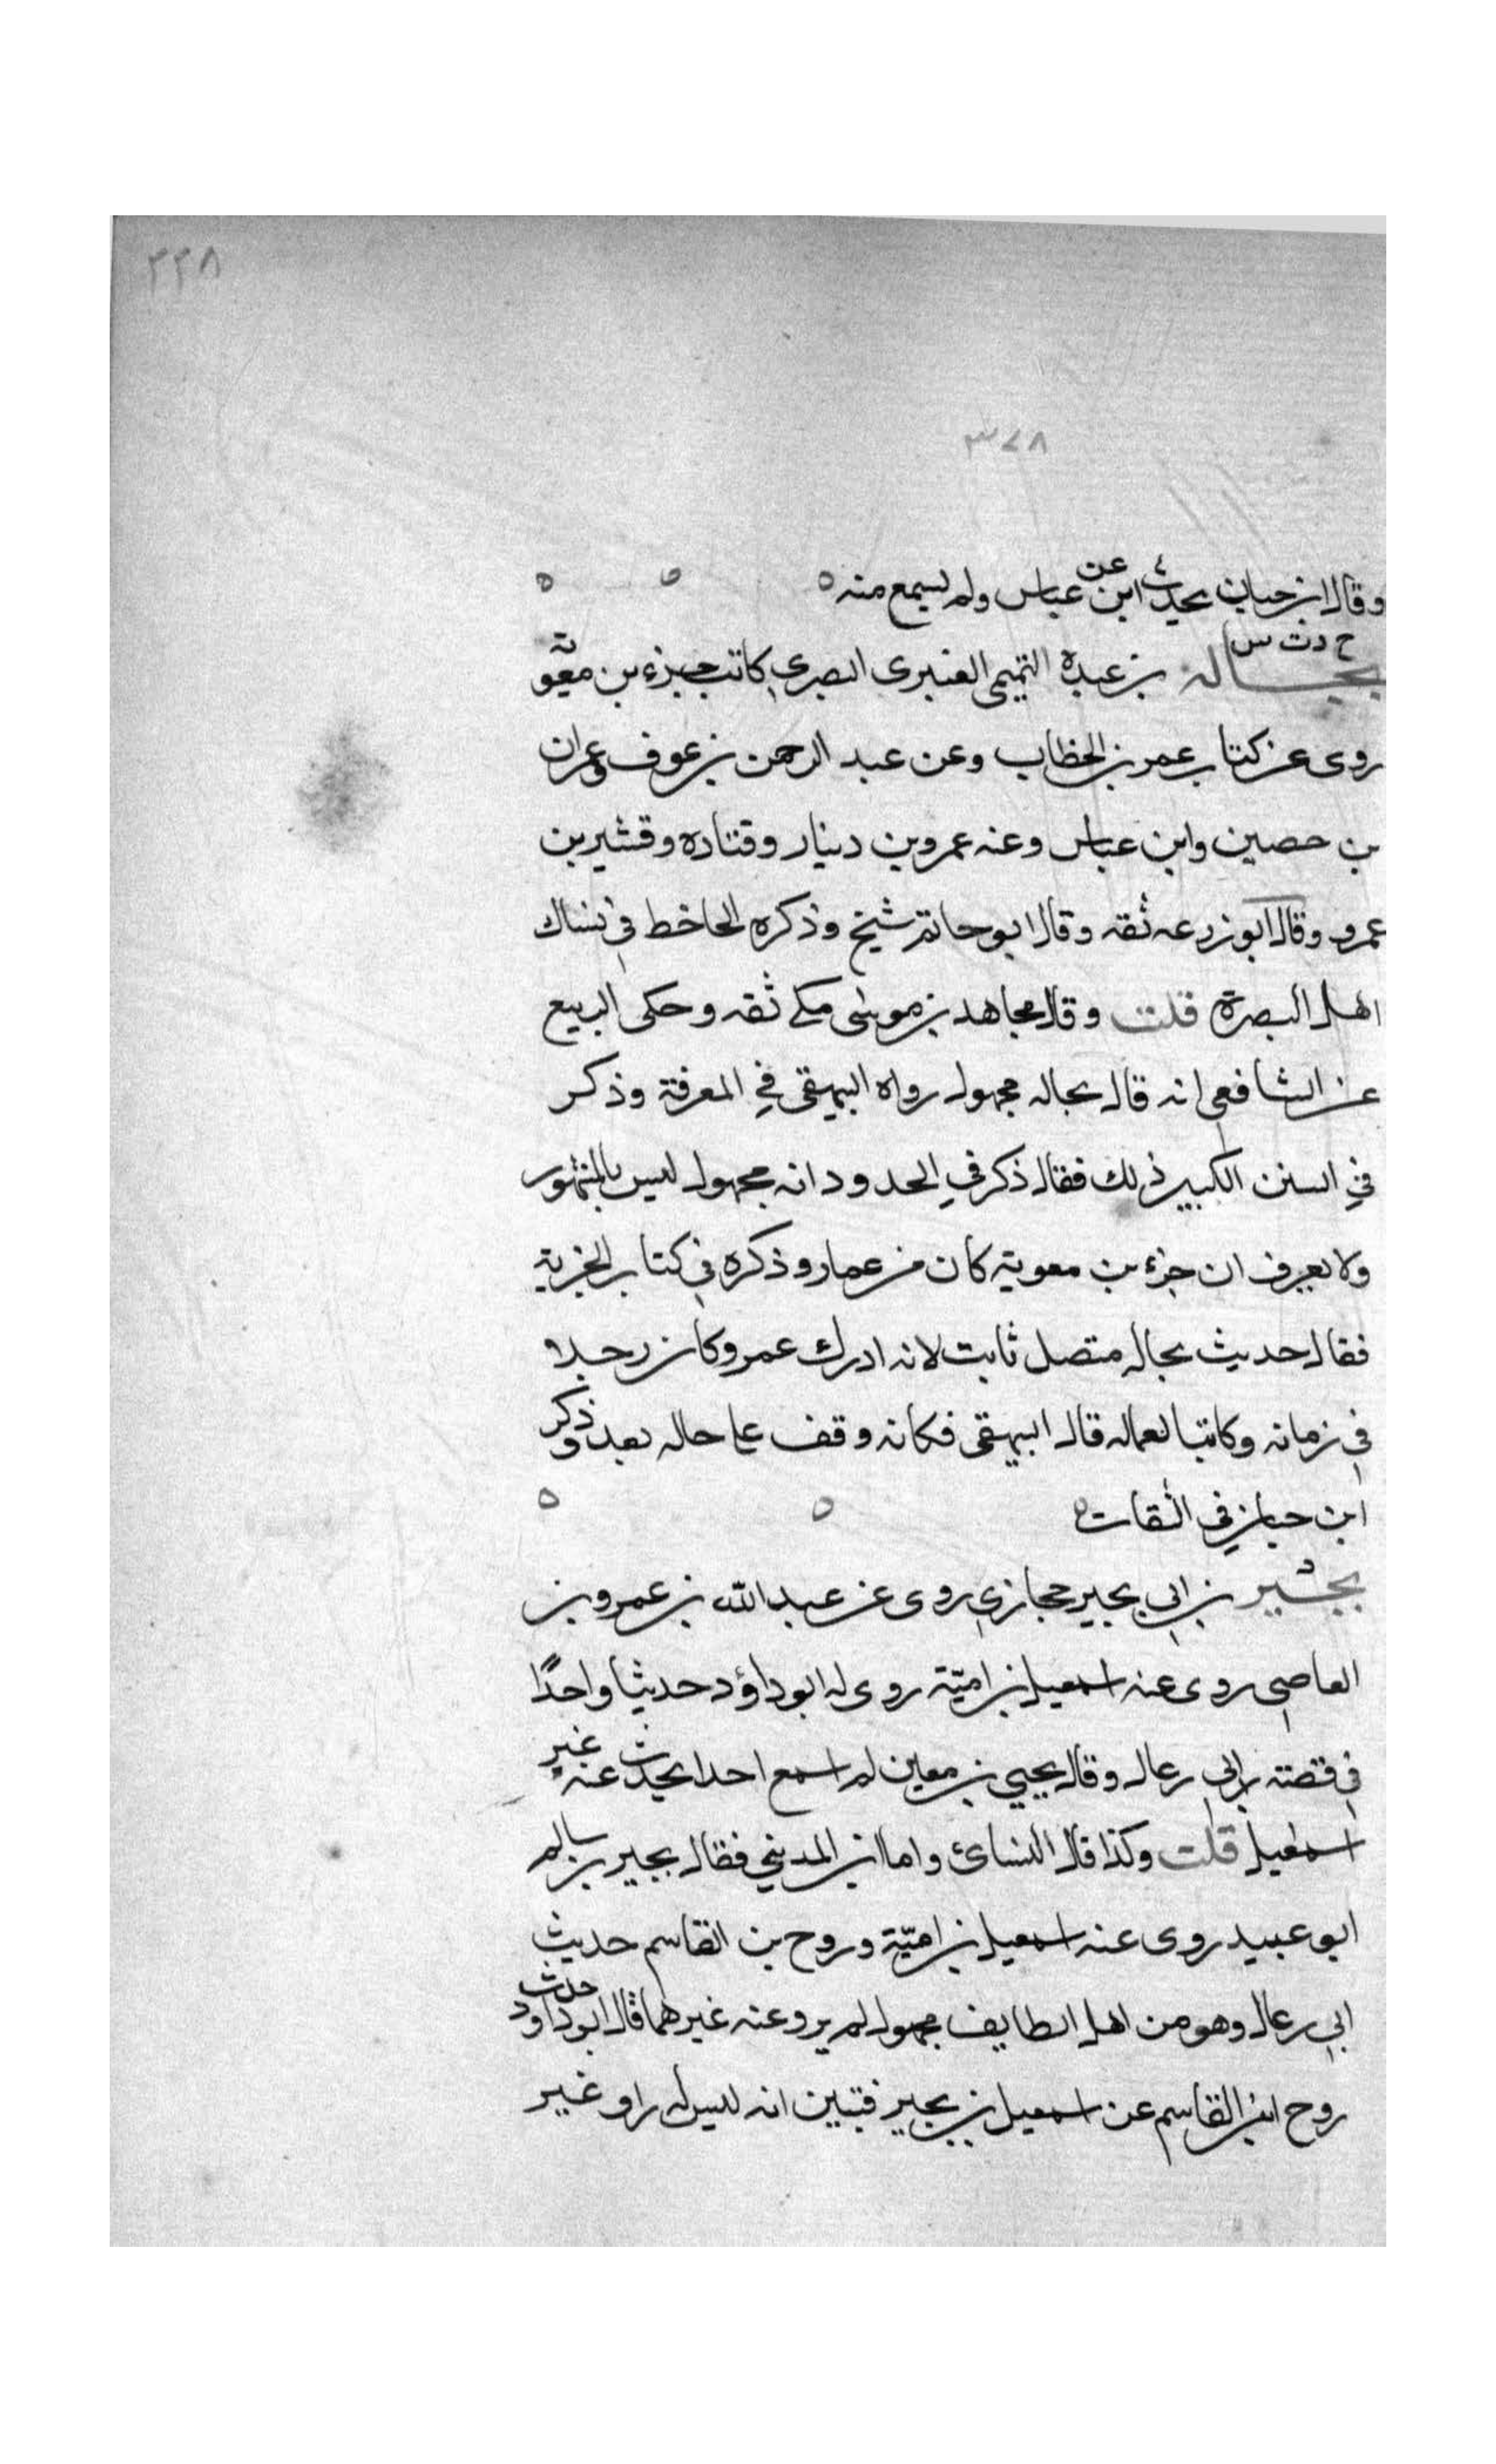 ٣٢٨
٣٧٨
وقال ابن حبان يحدث عن ابن عباس ولم يسمع منه
خ د ت س
بجاله بن عبدة التميمي العنبرى البصري كاتب جزء بن معوية
روى عن كتاب عمر بن الخطاب وعن عبد الرحمن بن عوف وعمران
بن حصين وابن عباس وعنه عمرو بن دينار وقتاده وقشير بن
عمرو وقال ابو زرعه ثقه وقال ابو حاتم شيخ وذكره الحاخط في نساك
اهل البصرة قلت وقال مجاهد بن موسى مكي ثقه وحكى الربيع
عن الشافعي انه قال بجاله مجهول رواه البيهقى في المعرفة وذكر
في السنن الكبير ذلك فقال ذكر في الحدود انه مجهول ليس بالمشهور
ولا يعرف ان جزء بن معوية كان من عمار وذكره في كتاب الجزية
فقال حديث بجاله متصل ثابت لانه ادرك عمر وكان رجلا
في زمانه وكاتبا لعماله قال البيهقى فكانه وقف على حاله بعد وذكر
ابن حبان في الثقات
بجير بن ابي بجير حجازي روى عن عبد الله بن عمرو بن
العاصي روى عنه اسمعيل بن امية روى له ابو داؤد حديثا واحدًا
في قصته ابي رعال وقال يحيي بن معين لم اسمع احدا يحدث عنه غير
اسمعيل قلت وكذا قال النسائ واما ابن المديني فقال بجير بن سالم
ابو عبيد روى عنه اسمعيل بن اميّة وروح بن القاسم حديث
ابي رعال وهو من اهل الطايف مجهول لم يرو عنه غيرهما قال ابو داود حدث
روح ابن القاسم عن اسمعيل بن بجير فتبين انه ليس له راو غير